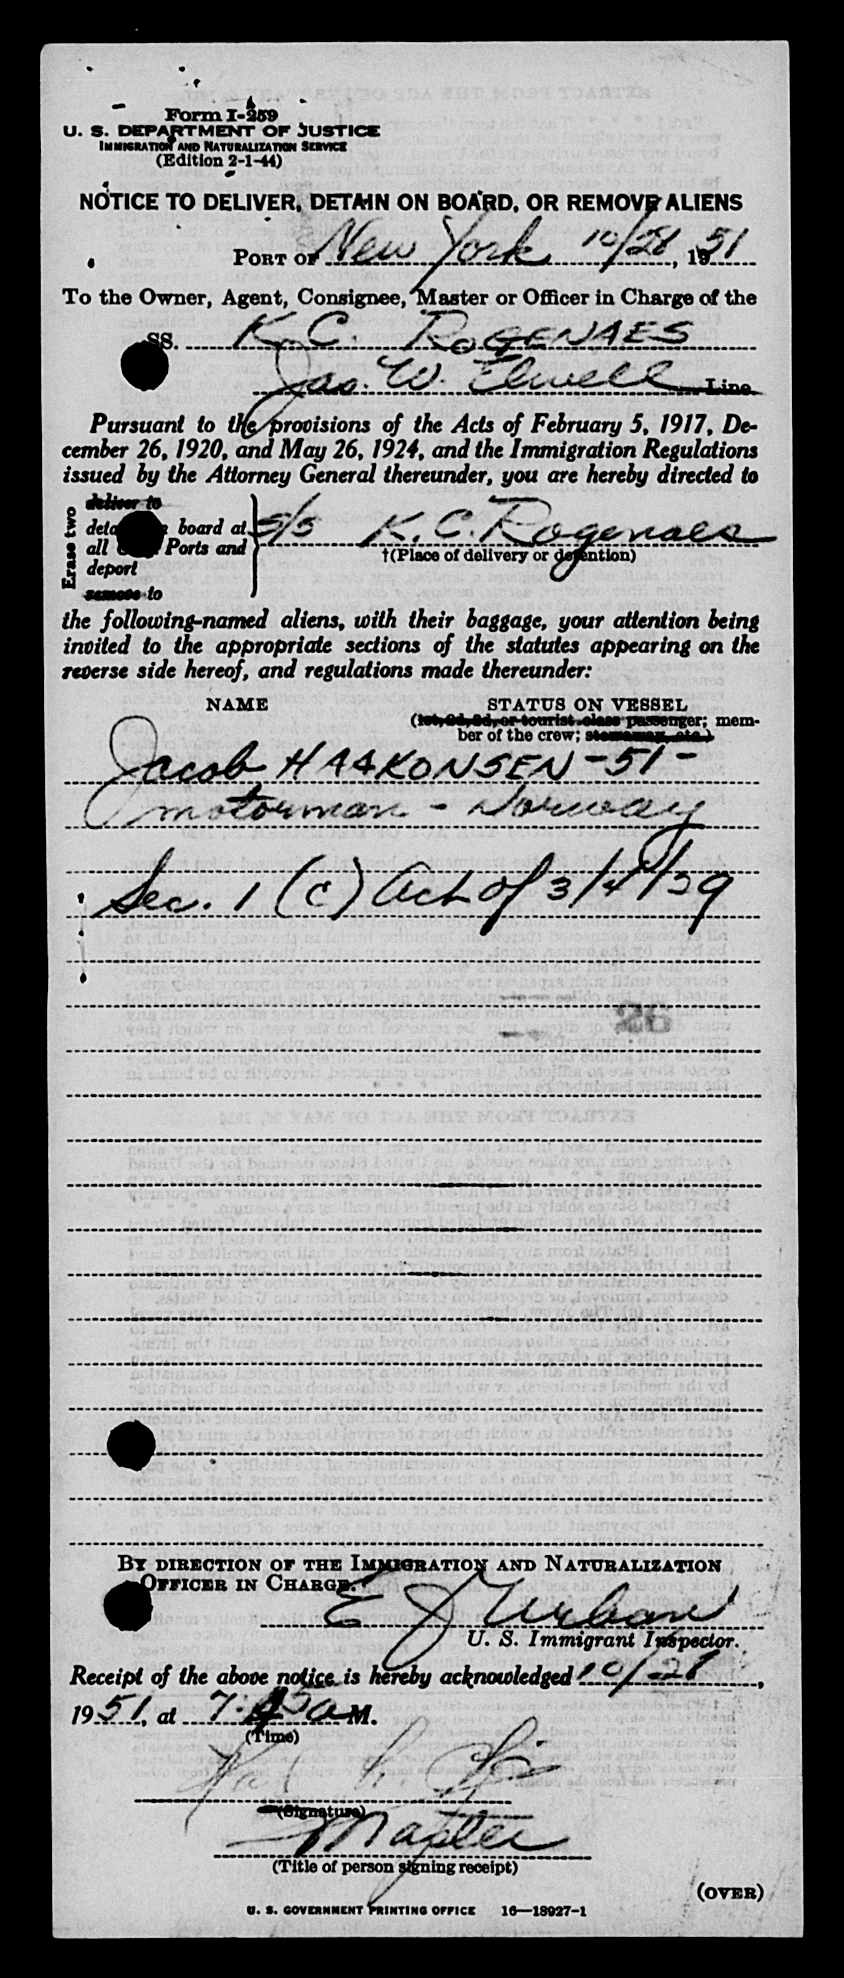 Form I-259
U. S. DEPARTMENT OF JUSTICE
IMMIGRATION AND NATURALIZATION SERVICE
(Edition 2-1-44)
NOTICE TO DELIVER, DETAIN ON BOARD, OR REMOVE ALIENS
PORT OF New York 10/28, 1951
To the Owner, Agent, Consignee, Master or Officer in Charge of the
SS. K. C. ROGENAES
Jas. W. Elwell Line
Pursuant to the provisions of the Acts of February 5, 1917, De-
cember 26, 1920, and May 26, 1924, and the Immigration Regulations
issued by the Attorney General thereunder, you are hereby directed to
Erase two
deliver to
board at
all Ports and
deport
remove to
S/S K. C. Rogenaes
†(Place of delivery or detention)
the following-named aliens, with their baggage, your attention being
invited to the appropriate sections of the statutes appearing on the
reverse side hereof, and regulations made thereunder:
NAME STATUS ON VESSEL
(1st, 2d, 3d, or tourist class passenger; mem-
ber of the crew; stowaway, etc.)
Jacob HAAKONSEN - 51 -
motorman - Norway
Sec. 1 (c) Act of 3/4/29
26
BY DIRECTION OF THE IMMIGRATION AND NATURALIZATION
OFFICER IN CHARGE.
E J Urban
U. S. Immigrant Inspector.
Receipt of the above notice is hereby acknowledged 10/28,
1951, at 7:45 a M.
(Time)
(Signature)
Master
(Title of person signing receipt)
(OVER)
U. S. GOVERNMENT PRINTING OFFICE 16—18927-1